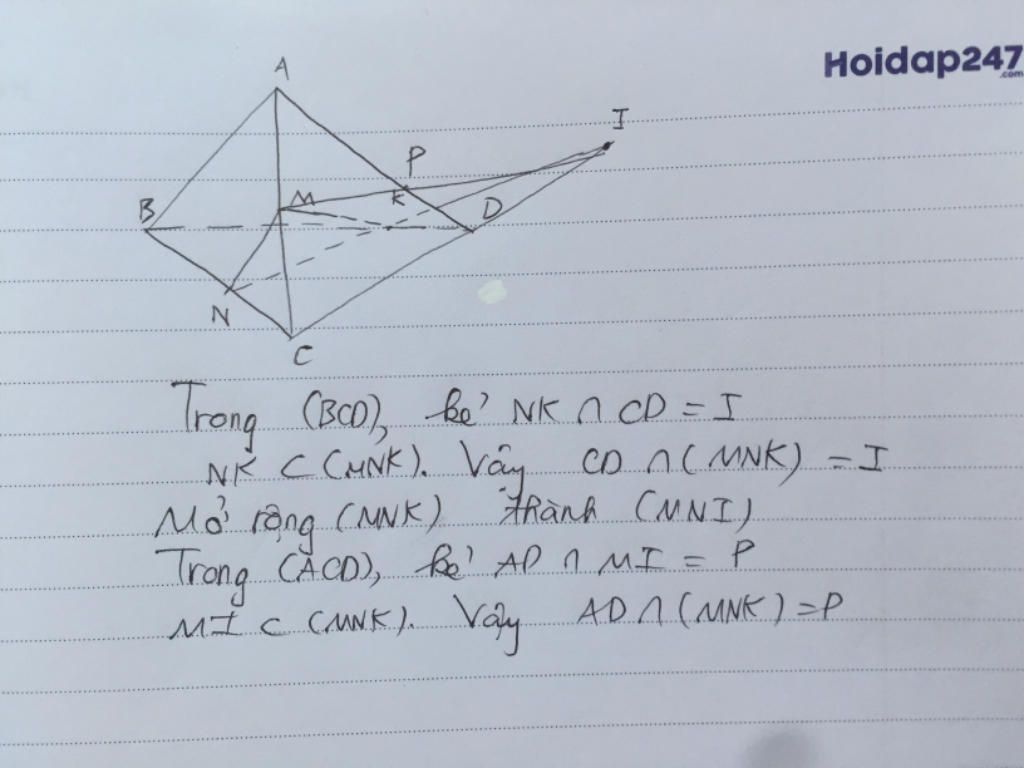 Hoidap247
.com
A
I
P
K
B
M
D
N
C
Trong (BCD), kẻ NK ∩ CD = I
NK ⊂ (MNK). Vậy CD ∩ (MNK) = I
Mở rộng (MNK) thành (MNI)
Trong (ACD), kẻ AD ∩ MI = P
MI ⊂ (MNK). Vậy AD ∩ (MNK) = P